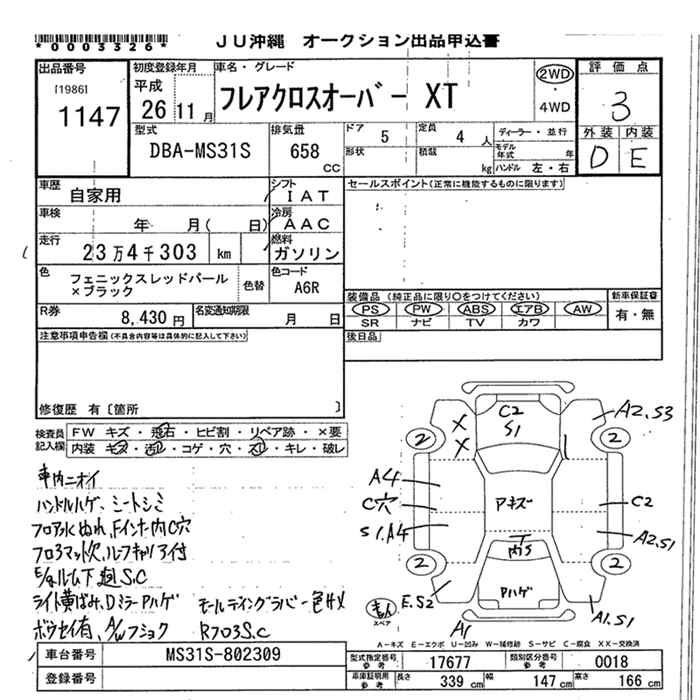 *0003326*
JU沖縄 オークション出品申込書
出品番号 初度登録年月 車名・グレード 評価点
[1986] 1147 平成 26 11月 フレアクロスオーバー XT 2WD 4WD 3
型式 排気量 ドア 5 定員 4人 ディーラー・並行 外装 内装
DBA-MS31S 658 CC 形状 積載 kg モデル年式 年 ハンドル 左・右 D E
車歴 自家用 シフト IAT セールスポイント(正常に機能するものに限ります)
車検 年 月( 日) 冷房 AAC
走行 23万4千303 km 燃料 ガソリン
色 フェニックスレッドパール×ブラック 色替 色コード A6R
装備品(純正品に限り○をつけてください) 新車保証書
R券 8,430円 名変通知期限 月 日 PS PW ABS エアB AW 有・無
SR ナビ TV カワ
注意事項申告欄(不具合内容等は具体的に記入して下さい) 後日品
修復歴 有〔箇所 〕
検査員記入欄 FW キズ・飛石・ヒビ割・リペア跡・×要
内装 キズ・汚レ・コゲ・穴・スレ・キレ・破レ
車内ニオイ
ハンドルハゲ、シートシミ
フロア水ぬれ、Fインナー内C穴
フロアマット欠、ルーフキャリア付
下廻S.C
ライト黄ばみ、DミラーPハゲ モールディングラバー色サメ
ボウセイ有、A/Wフショク Rフロ3S.C
C2
S1
X
X
A2.S3
2
2
A4
C穴
S1.A4
アキズ
C2
A2.S1
内S
2
2
Pハゲ
E.S2
スペア
A1
A1.S1
A-キズ E-エクボ U-凹み W-補修跡 S-サビ C-腐食 XX-交換済
車台番号 MS31S-802309 型式指定番号 参考 17677 類別区分番号 参考 0018
登録番号 車庫証明用 参考 長さ 339 cm 幅 147 cm 高さ 166 cm